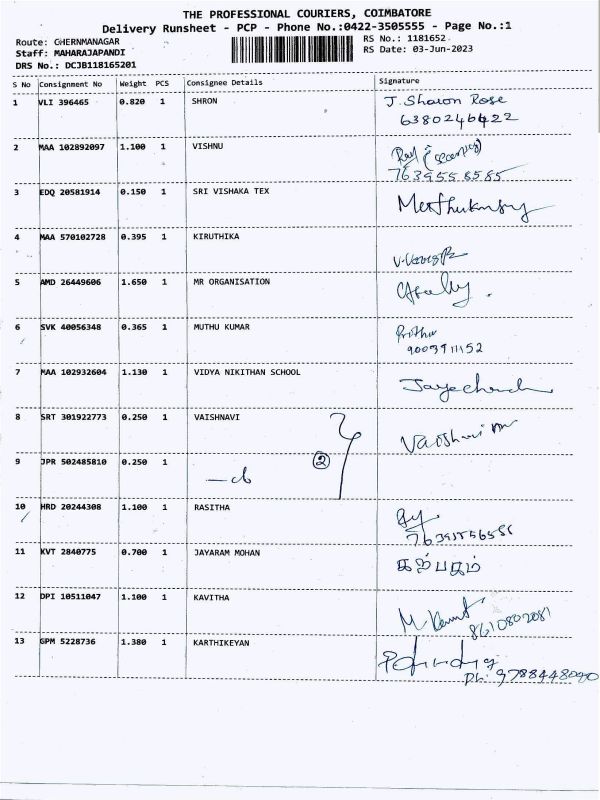 THE PROFESSIONAL COURIERS, COIMBATORE
Delivery Runsheet - PCP - Phone No.:0422-3505555 - Page No.:1
Route: CHERNMANAGAR
RS No.: 1181652
Staff: MAHARAJAPANDI
RS Date: 03-Jun-2023
DRS No.: DCJB118165201
S No Consignment No Weight PCS Consignee Details Signature
1 VLI 396465 0.820 1 SHRON J. Sharon Rose
6380246422
2 MAA 102892097 1.100 1 VISHNU
7639558585
3 EDQ 20581914 0.150 1 SRI VISHAKA TEX
4 MAA 570102728 0.395 1 KIRUTHIKA
5 AMD 26449606 1.650 1 MR ORGANISATION
6 SVK 40056348 0.365 1 MUTHU KUMAR
9003911152
7 MAA 102932604 1.130 1 VIDYA NIKITHAN SCHOOL
8 SRT 301922773 0.250 1 VAISHNAVI
9 JPR 502485810 0.250 1 2
10 HRD 20244308 1.100 1 RASITHA
11 KVT 2840775 0.700 1 JAYARAM MOHAN கற்பகம்
12 DPI 10511047 1.100 1 KAVITHA
8610802081
13 GPM 5228736 1.380 1 KARTHIKEYAN